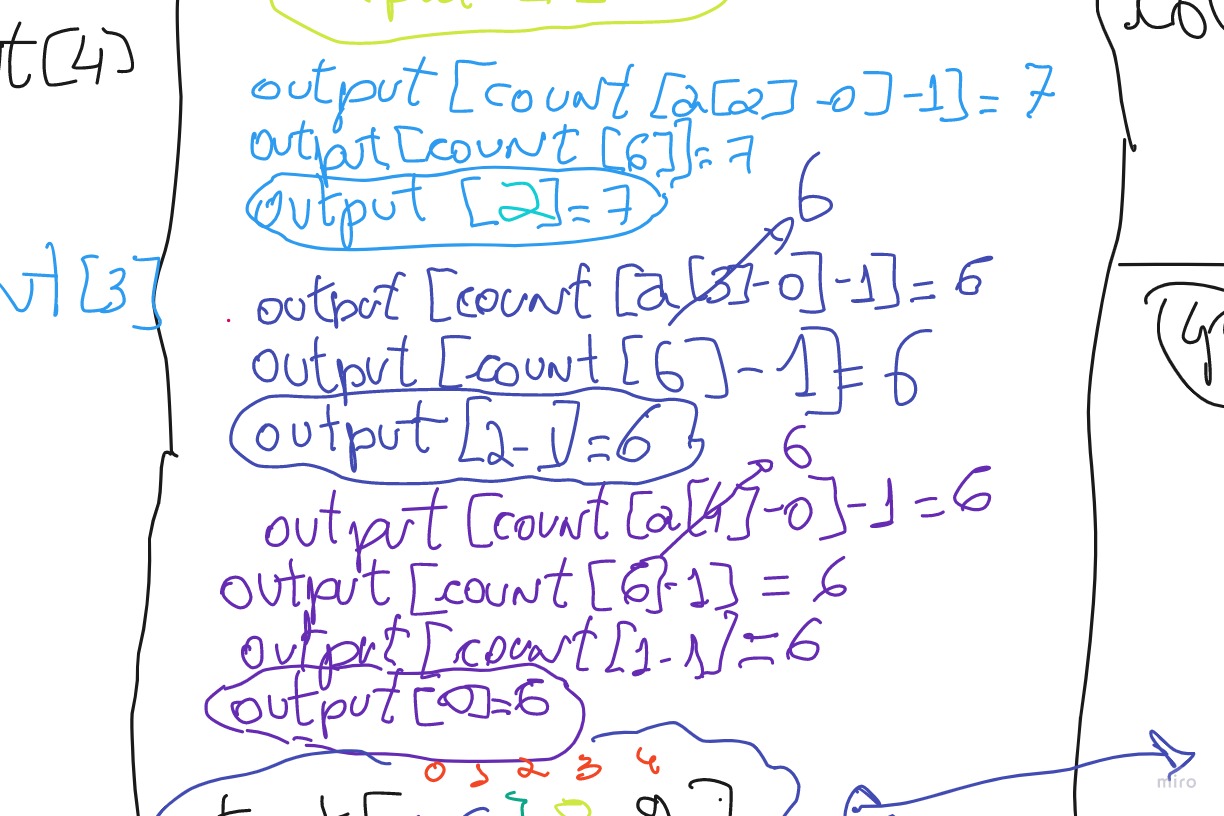 t[4]
output [count [a[2] -0] -1] = 7
output [count [6]] = 7
output [2] = 7
6
ut[3]
output [count [a[3]-0] -1] = 6
output [count [6] - 1] = 6
output [2-1] = 6
6
output [count [a[4]-0] -1 = 6
output [count [6]-1] = 6
output [count [1-1] = 6
output [0] = 6
0 1 2 3 4
miro